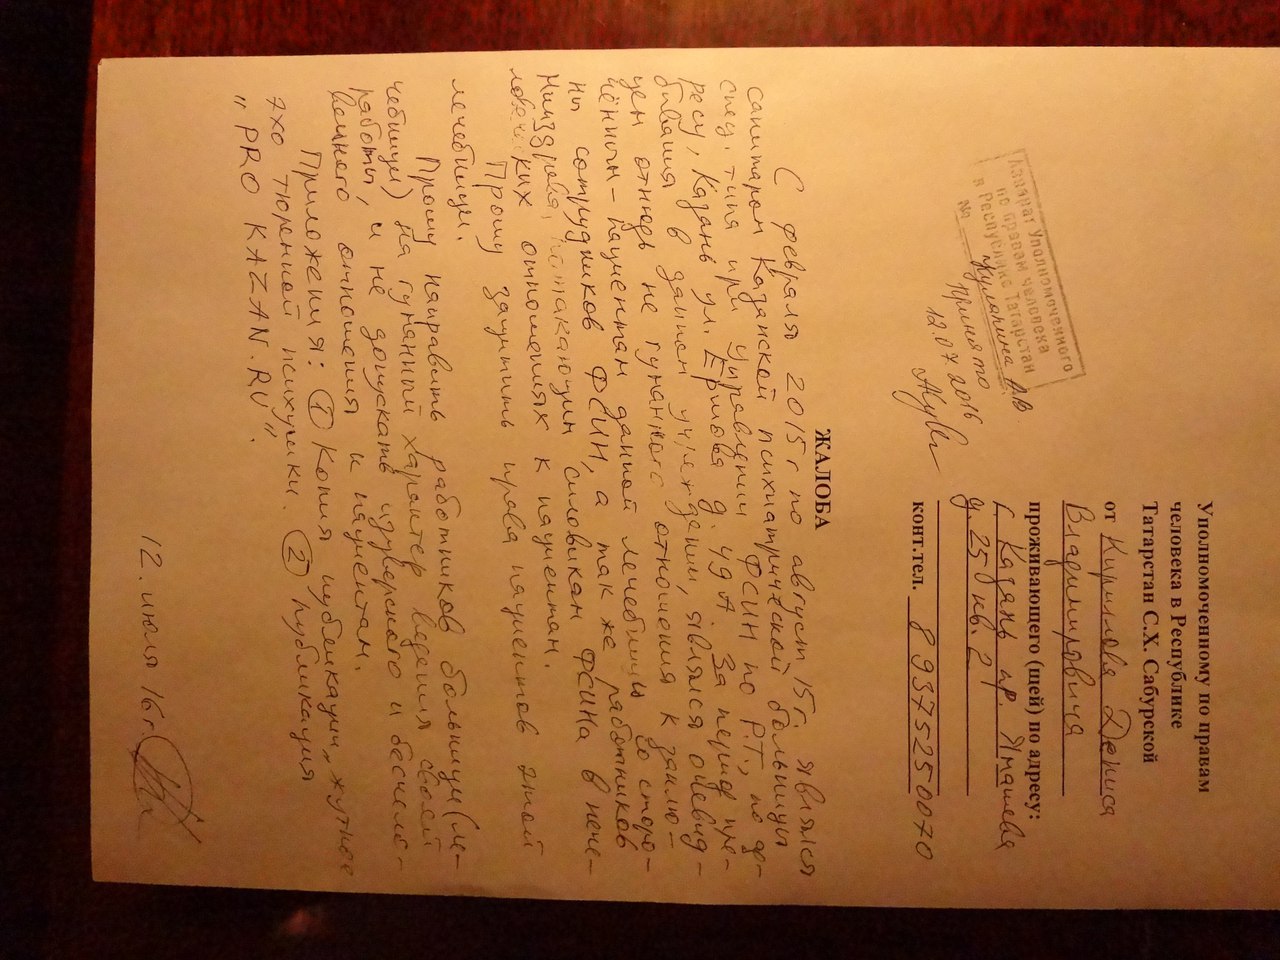 Уполномоченному по правам
человека в Республике
Татарстан С.Х. Сабурской
от Кириллова Дениса
Владимировича
проживающего (щей) по адресу:
г. Казань пр. Ямашева
д. 25 кв. 21
конт.тел. 89375250070
Аппарат Уполномоченного
по правам человека
в Республике Татарстан
№
принято
12.07.2016
ЖАЛОБА
С февраля 2015г по август 15г. являлся
санитаром Казанской психиатрической больницы
спец. типа при управлении ФСИН по Р.Т., по ад-
ресу, Казань ул. Ершова д. 49А. За период пре-
бивания в данном учреждении, являлся очевид-
цем отнюдь не гуманного отношения к заклю-
чённым - пациентам данной лечебницы со сторо-
ны сотрудников ФСИН, а так же работников
Минздрава, потакающим силовикам ФСИНа в нече-
ловеческих отношениях к пациентам.
Прошу защитить права пациентов этой
лечебницы.
Прошу направить работников больницы (ле-
чебницы) на гуманный характер ведения своей
работы, и не допускать изуверского и бесчело-
вечного отношения к пациентам.
Приложения: ① Копия публикации „жуткое
эхо тюремной психушки. ② публикация
„PRO KAZAN.RU".
12. июля 16г.